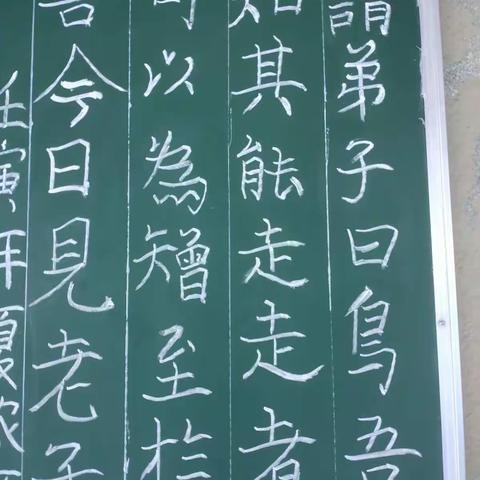 謂弟子曰鳥吾
知其能走走者
可以為矰至於
吾今日見老子
寅年夏